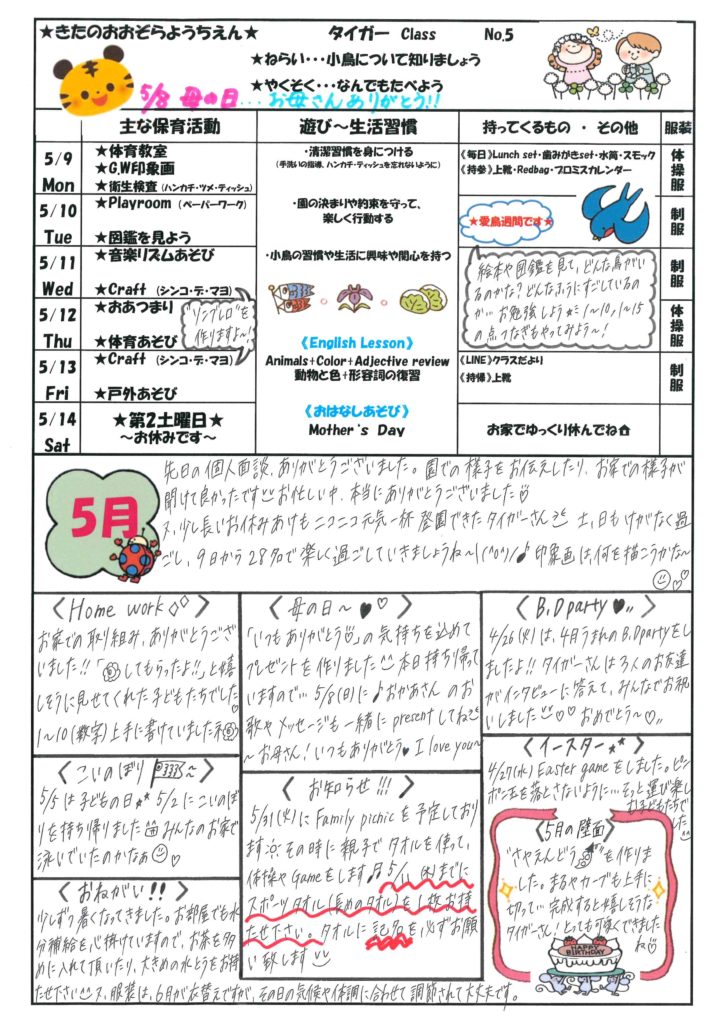 ★きたのおおぞらようちえん★ タイガー Class No.5
★ねらい・・・小鳥について知りましょう
★やくそく・・・なんでもたべよう
5/8 母の日・・・お母さんありがとう!!
主な保育活動 遊び～生活習慣 持ってくるもの・その他 服装
5/9 Mon
★体育教室
★G.W印象画
★衛生検査(ハンカチ・ツメ・ティッシュ)
・清潔習慣を身につける
(手洗いの指導、ハンカチ・ティッシュを忘れないように)
《毎日》Lunch set・歯みがきset・水筒・スモック
《持参》上靴・Redbag・プロミスカレンダー
体操服
5/10 Tue
★Playroom (ペーパーワーク)
★図鑑を見よう
・園の決まりや約束を守って、
楽しく行動する
★愛鳥週間です★
制服
5/11 Wed
★音楽リズムあそび
★Craft (シンコ・デ・マヨ)
・小鳥の習慣や生活に興味や関心を持つ
絵本や図鑑を見て、どんな鳥がい
るのかな?どんなふうにすごしているの
か… お勉強しよう 1～10、1～15
の点つなぎもやってみよう～!
制服
5/12 Thu
★おあつまり
★体育あそび
"リングレロ"を
作りますよ～!
《English Lesson》
Animals+Color+Adjective review
動物と色+形容詞の復習
体操服
5/13 Fri
★Craft (シンコ・デ・マヨ)
★戸外あそび
《LINE》クラスだより
《持帰》上靴
制服
5/14 Sat
★第2土曜日★
～お休みです～
《おはなしあそび》
Mother's Day
お家でゆっくり休んでね
5月
先日の個人面談、ありがとうございました。園での様子をお伝えしたり、お家での様子が
聞けて良かったです お忙しい中、本当にありがとうございました
又、少し長いお休みあけもニコニコ元気一杯登園できたタイガーさん 土、日もけがなく過
ごし、9日から28名で楽しく過ごしていきましょうね～!(^o^)/♪ 印象画は何を描こうかな～
〈Home work◇◇〉
お家での取り組み、ありがとうござ
いました!!「してもらったよ!!」と嬉
しそうに見せてくれた子どもたちでした
1～10(数字)上手に書けていましたネ
〈母の日～♥♡〉
「いつもありがとう♡」の気持ちを込めて
プレゼントを作りました 本日持ち帰って
いますので… 5/8(日)に♪おかあさん のお
歌やメッセージも一緒にpresentしてね
～お母さん!いつもありがとう♥ I love you～
〈B.D party♥〃〉
4/26(火)は、4月うまれのB.D partyをし
ましたよ!! タイガーさんは3人のお友達
がインタビューに答えて、みんなでお祝
いしました♡♡ おめでとう～♡〃
〈こいのぼり～〉
5/5は子どもの日★★ 5/2にこいのぼ
りを持ち帰りました みんなのお家で
泳いでいたのかなぁ♡
〈お知らせ!!!〉
5/31(火)にFamily picnicを予定しており
ます その時に親子でタオルを使って、
体操やGameをします♬ 5/11(水)までに
スポーツタオル(長めのタオル)を1枚お持
たせ下さい。タオルに記名を必ずお願
い致します
〈イースター★★〉
4/27(水)Easter gameをしました。ピン
ポン玉を落とさないように…そっと運び楽し
む子どもたちで
した
〈5月の壁面〉
"さやえんどう"を作りま
した。まるやカーブも上手に
切ってい 完成すると嬉しそうな
タイガーさん!とっても可愛くできました
ね♡
HAPPY BIRTHDAY
〈おねがい!!〉
少しずつ暑くなってきました。お部屋でも水
分補給を心掛けていますので、お茶を多
めに入れて頂いたり、大きめの水とうをお持
たせ下さい 又、服装は、6月が衣替えですが、その日の気候や体調に合わせて調節されて大丈夫です。